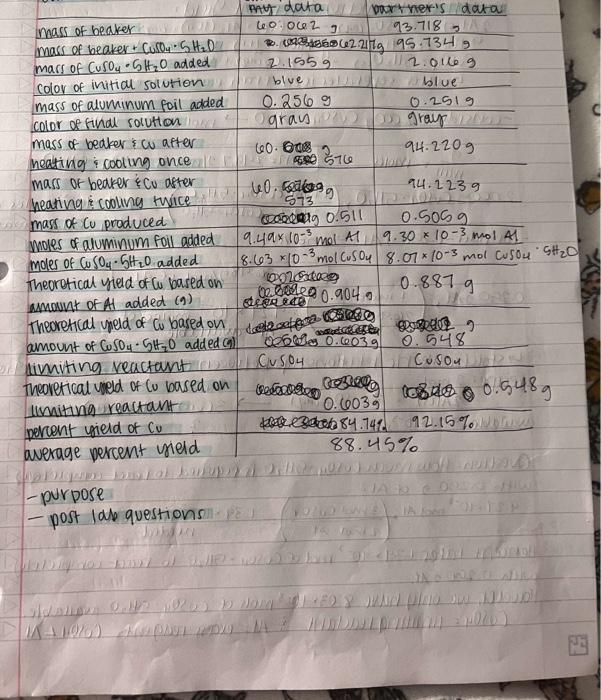 my data partner's data
mass of beaker 60.062 g 93.718 g
mass of beaker + CuSO4 · 5H2O 62.217g 95.734 g
mass of CuSO4 · 5H2O added 2.155 g 2.016 g
color of initial solution blue blue
mass of aluminum foil added 0.256 g 0.251 g
color of final solution gray gray
mass of beaker & cu after 60. g 94.220 g
heating & cooling once 576
mass of beaker & Cu after 60. g 94.223 g
heating & cooling twice 573
mass of Cu produced 0.511 0.505 g
moles of aluminium foil added 9.49 x 10-3 mol Al 9.30 x 10-3 mol Al
moles of CuSO4 · 5H2O added 8.63 x 10-3 mol CuSO4 8.07 x 10-3 mol CuSO4 · 5H2O
Theoretical yield of Cu based on 0.887 g
amount of Al added (g) 0.904 g
Theoretical yield of Cu based on g
amount of CuSO4 · 5H2O added (g) 0.603 g 0.548
limiting reactant CuSO4 CuSO4
Theoretical yield of Cu based on 0.548 g
limiting reactant 0.603 g
percent yield of Cu 84.74% 92.15%
average percent yield 88.45%
- purpose
- post lab questions